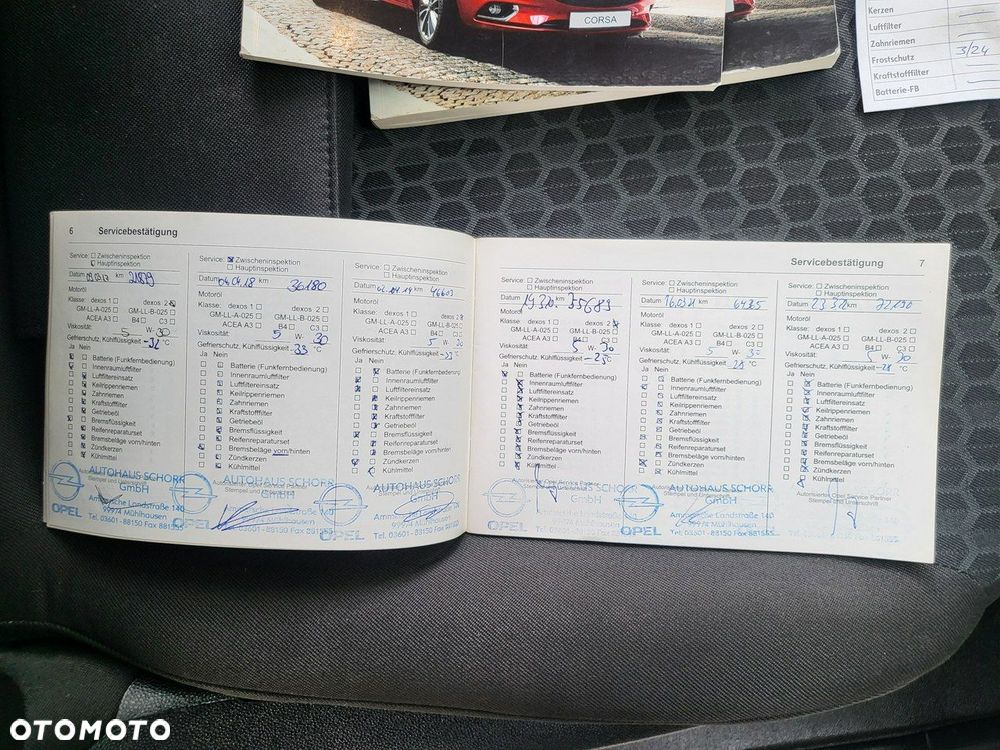 CORSA
Kerzen
Luftfilter
Zahnriemen
Frostschutz 3/24
Kraftstofffilter
Batterie-FB
6 Servicebestätigung
Service: Zwischeninspektion
Hauptinspektion
Datum km
Motoröl
Klasse: dexos 1 dexos 2
GM-LL-A-025 GM-LL-B-025
ACEA A3 B4 C3
Viskosität: 5 W- 30
Gefrierschutz, Kühlflüssigkeit °C
Ja Nein
Batterie (Funkfernbedienung)
Innenraumluftfilter
Luftfiltereinsatz
Keilrippenriemen
Zahnriemen
Kraftstofffilter
Getriebeöl
Bremsflüssigkeit
Reifenreparaturset
Bremsbeläge vorn/hinten
Zündkerzen
Kühlmittel
AUTOHAUS SCHORR
GmbH
99974 Mühlhausen
Tel. 03601-88150 Fax 881555
OPEL
Service: Zwischeninspektion
Hauptinspektion
Datum 04.04.18 km 36180
Motoröl
Klasse: dexos 1 dexos 2
GM-LL-A-025 GM-LL-B-025
ACEA A3 B4 C3
Viskosität: 5 W- 30
Gefrierschutz, Kühlflüssigkeit -33 °C
Ja Nein
Batterie (Funkfernbedienung)
Innenraumluftfilter
Luftfiltereinsatz
Keilrippenriemen
Zahnriemen
Kraftstofffilter
Getriebeöl
Bremsflüssigkeit
Reifenreparaturset
Bremsbeläge vorn/hinten
Zündkerzen
Kühlmittel
AUTOHAUS SCHORR
Service: Zwischeninspektion
Hauptinspektion
Datum km 46603
Motoröl
Klasse: dexos 1 dexos 2
GM-LL-A-025 GM-LL-B-025
ACEA A3 B4 C3
Viskosität: 5 W- 30
Gefrierschutz, Kühlflüssigkeit °C
Ja Nein
Batterie (Funkfernbedienung)
Innenraumluftfilter
Luftfiltereinsatz
Keilrippenriemen
Zahnriemen
Kraftstofffilter
Getriebeöl
Bremsflüssigkeit
Reifenreparaturset
Bremsbeläge vorn/hinten
Zündkerzen
Kühlmittel
AUTOHAUS SCHORR
GmbH
99974 Mühlhausen
Tel. 03601-88150 Fax 881555
OPEL
Servicebestätigung 7
Service: Zwischeninspektion
Hauptinspektion
Datum km 55689
Motoröl
Klasse: dexos 1 dexos 2
GM-LL-A-025 GM-LL-B-025
ACEA A3 B4 C3
Viskosität: 5 W- 30
Gefrierschutz, Kühlflüssigkeit °C
Ja Nein
Batterie (Funkfernbedienung)
Innenraumluftfilter
Luftfiltereinsatz
Keilrippenriemen
Zahnriemen
Kraftstofffilter
Getriebeöl
Bremsflüssigkeit
Reifenreparaturset
Bremsbeläge vorn/hinten
Zündkerzen
Kühlmittel
OPEL
Service: Zwischeninspektion
Hauptinspektion
Datum 16.03.21 km
Motoröl
Klasse: dexos 1 dexos 2
GM-LL-A-025 GM-LL-B-025
ACEA A3 B4 C3
Viskosität: 5 W- 30
Gefrierschutz, Kühlflüssigkeit °C
Ja Nein
Batterie (Funkfernbedienung)
Innenraumluftfilter
Luftfiltereinsatz
Keilrippenriemen
Zahnriemen
Kraftstofffilter
Getriebeöl
Bremsflüssigkeit
Reifenreparaturset
Bremsbeläge vorn/hinten
Zündkerzen
Kühlmittel
AUTOHAUS SCHORR
GmbH
Ammersche Landstraße 140
99974 Mühlhausen
Tel. 03601-88150 Fax 881555
OPEL
Service: Zwischeninspektion
Hauptinspektion
Datum km
Motoröl
Klasse: dexos 1 dexos 2
GM-LL-A-025 GM-LL-B-025
ACEA A3 B4 C3
Viskosität: 5 W- 30
Gefrierschutz, Kühlflüssigkeit -28 °C
Ja Nein
Batterie (Funkfernbedienung)
Innenraumluftfilter
Luftfiltereinsatz
Keilrippenriemen
Zahnriemen
Kraftstofffilter
Getriebeöl
Bremsflüssigkeit
Reifenreparaturset
Bremsbeläge vorn/hinten
Zündkerzen
Kühlmittel
Autorisierter Opel Service Partner
Stempel und Unterschrift
OTOMOTO